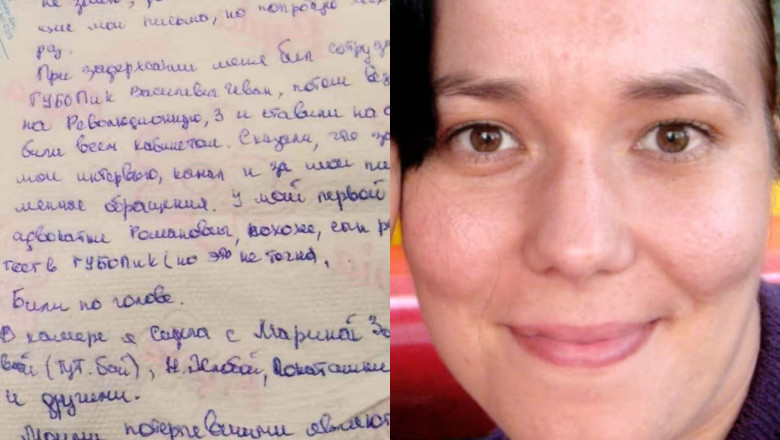 не знаю,
щие мои письма, но попробую
раз.
При задержании меня бил сотруд
ГУБОПиК Василевич Иван, потом
на Революционную, 3 и ставили на
били всем кабинетом. Сказали, что за
мои интервью, канал и за мои
менные обращения. У моей первой
адвокатки Романовской, похоже, сын
тает в ГУБОПиК (но это не точно,
Били по голове.
В камере я сидела с Мариной Зо
вой (тут.бай),
и другими.
Моими потерпевшими являют